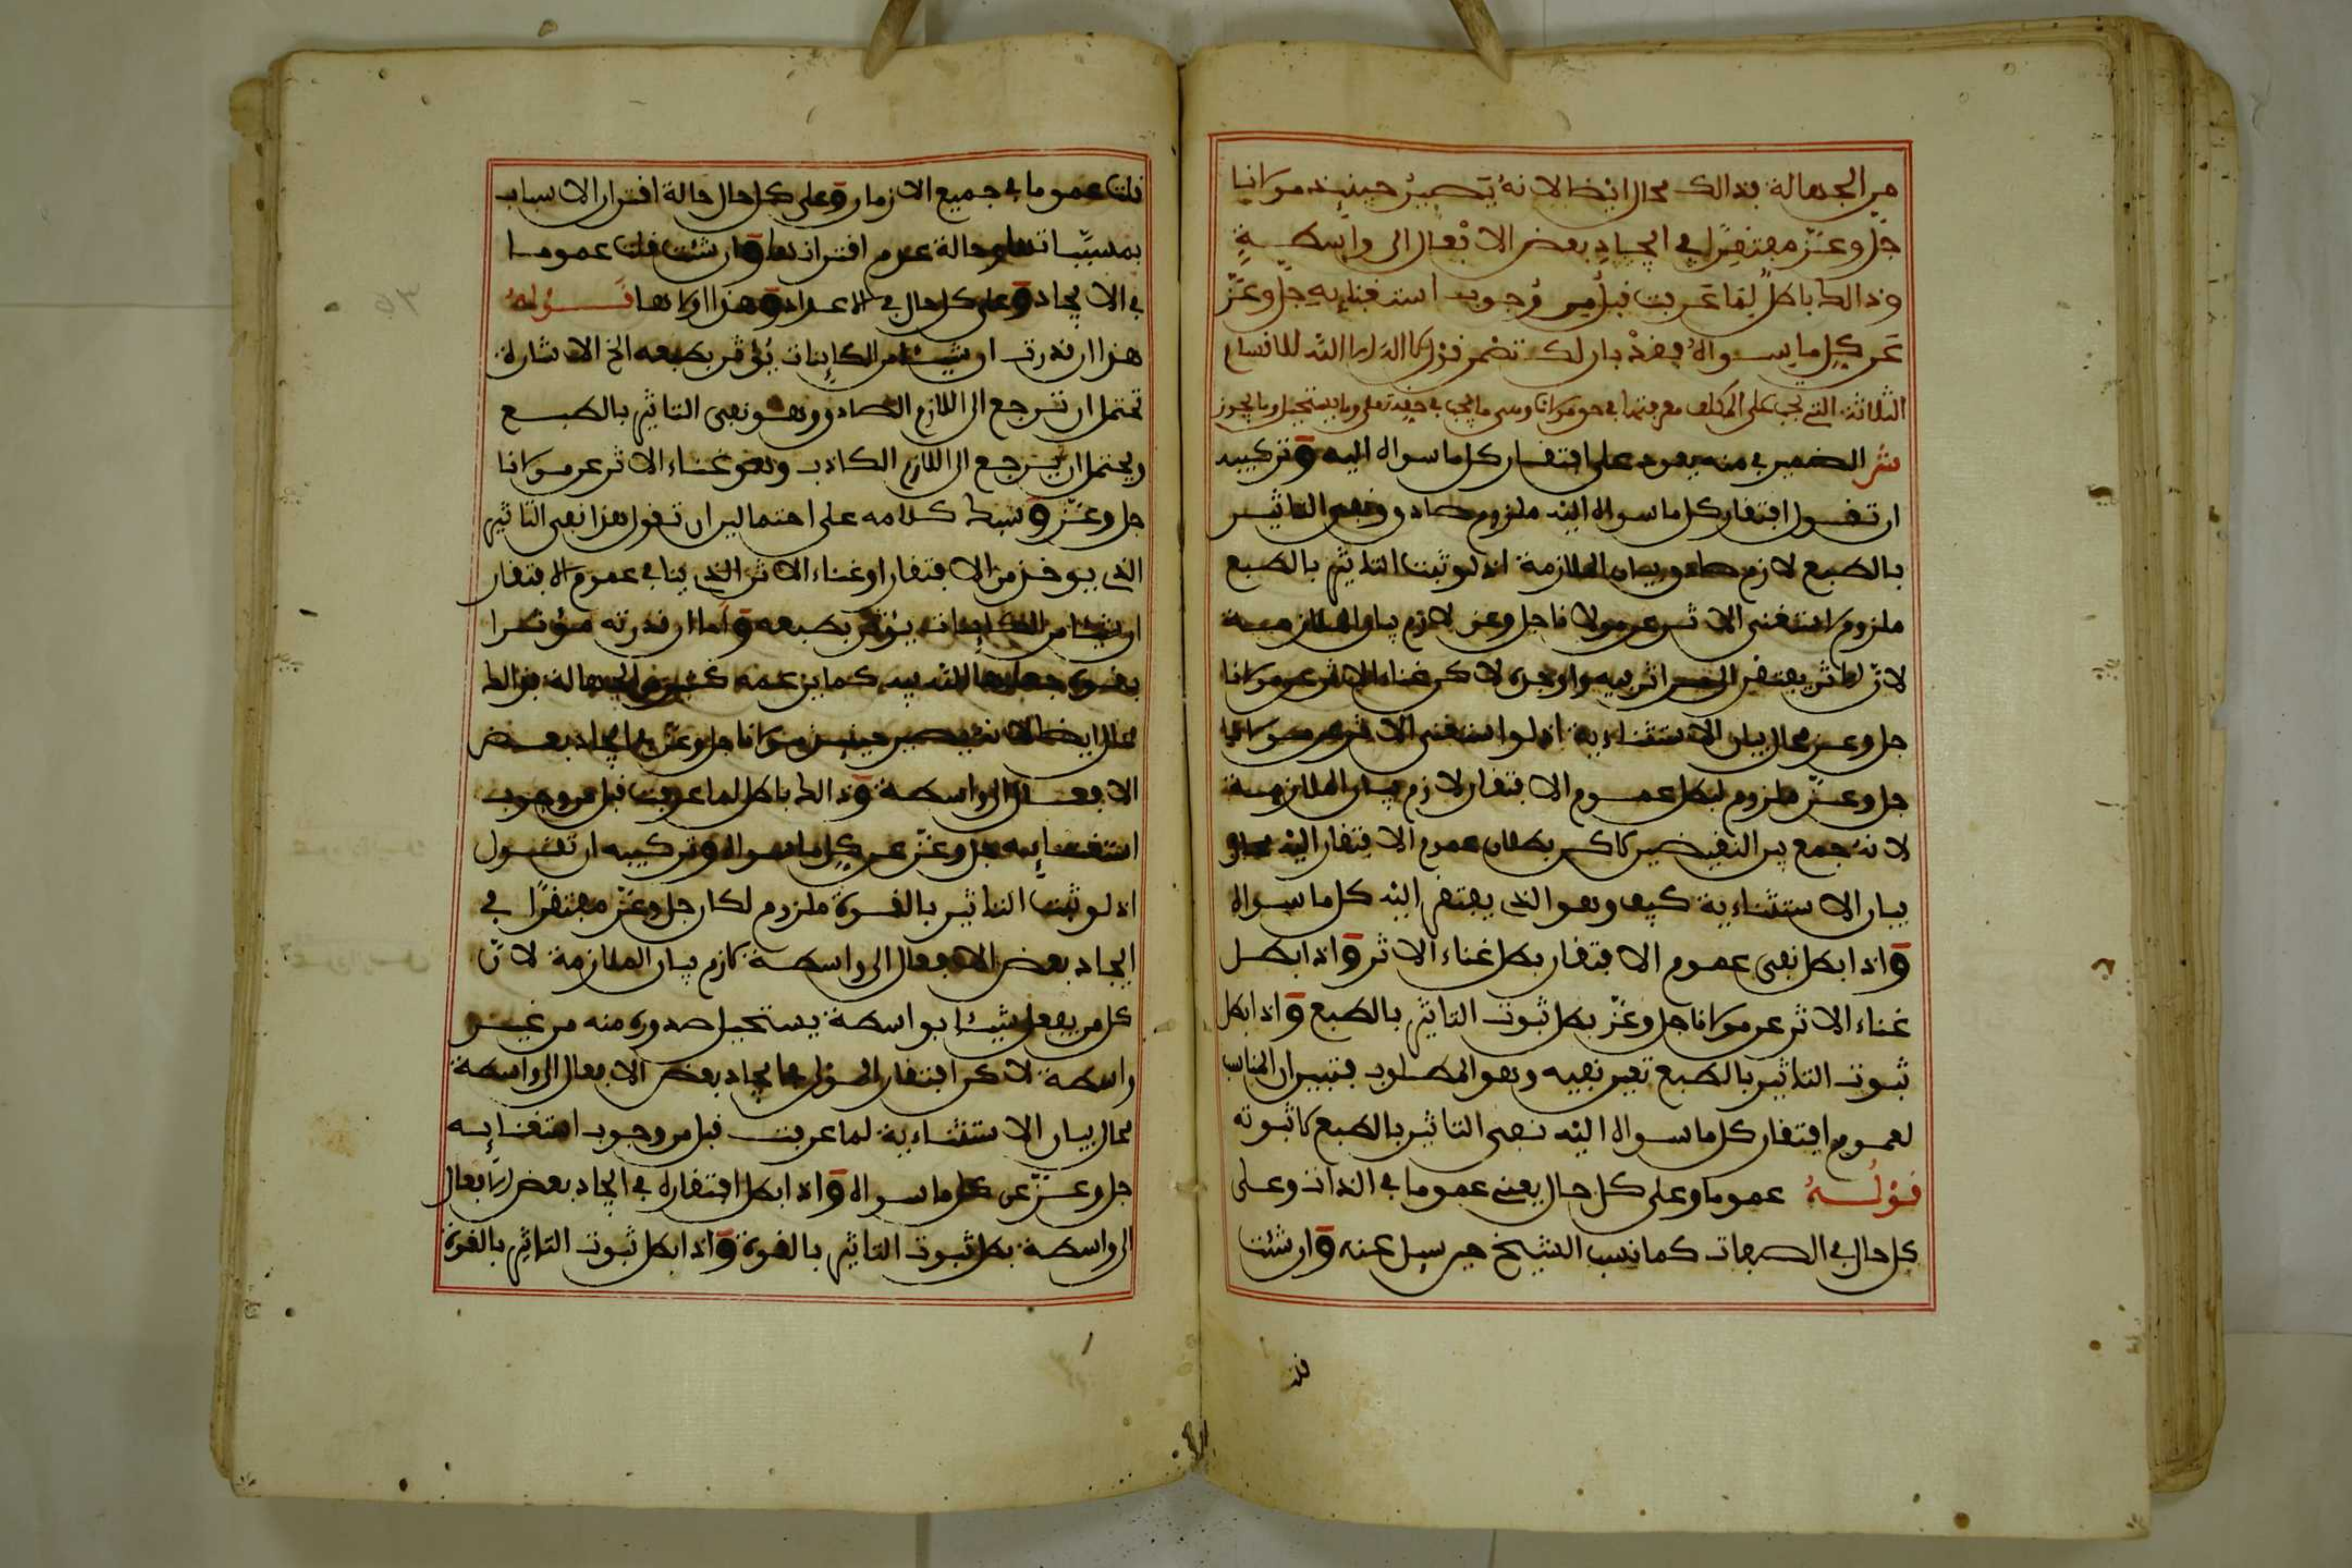 من الجهالة فذالك محال ايضا لانه يصير حينيذ مولانا
جل وعز مفتقرا في ايجاد بعض الافعال الى واسطة
وذالك باطل لما عرفت قبل من وجوب استغنايه جل وعز
عن كل ما سواه فقد بان لك تضمن قول لا اله الا الله للاقسام
الثلاثة التي يجب على المكلف معرفتها في حق مولانا وهي ما يجب في حقه تعلى وما يستحيل وما يجوز
ش الضمير في منه يعود على افتقار كل ما سواه اليه وتركيبه
ان تقول افتقار كل ما سواه اليه ملزوم صادق ونفي التاثير
بالطبع لازم صادق بيان الملازمة اذ لو ثبت التاثير بالطبع
ملزوم استغنى الاثر عن مولانا جل وعز لازم بيان الملازمة
لان الاثر يفتقر الى من اثر فيه واوجده لاكن غناء الاثر عن مولانا
جل وعز محال بيان الاستثناءية اذ لو استغنى الاثر عن مولانا
جل وعز ملزوم لبطل عموم الافتقار لازم بيان الملازمة
لانه جمع بين النقيضين لاكن بطلان عموم الافتقار اليه
بيان الاستثناءية كيف وهو الذي يفتقر اليه كل ما سواه
واذا بطل نفي عموم الافتقار بطل غناء الاثر واذا بطل
غناء الاثر عن مولانا جل وعز بطل ثبوت التاثير بالطبع واذا بطل
ثبوت التاثير بالطبع تعين نفيه وهو المطلوب فتبين ان المناسب
لعموم افتقار كل ما سواه اليه نفي التاثير بالطبع لا ثبوته
قوله عموما وعلى كل حال يعني عموما في الذات وعلى
كل حال في الصفات كما نسب الشيخ حين سيل عنه وان شئت
قلت
قلت عموما في جميع الازمان وعلى كل حال حالة اقتران الاسباب
بمسبباتها وحالة عدم اقترانها وان شئت قلت عموما
في الايجاد وعلى كل حال في الاعدام وهذا اولاها قوله
هذا ان قدرت ان شيئا من الكاينات يؤثر بطبعه الخ الاشارة
تحتمل ان ترجع الى اللازم الصادق وهو نفي التاثير بالطبع
ويحتمل ان يرجع الى اللازم الكاذب وهو غناء الاثر عن مولانا
جل وعز وبسط كلامه على احتمالين ان تقول هذا نفي التاثير
الذي يوخذ من الافتقار او غناء الاثر الذي ينافي عموم الافتقار
ان شيئا من الكاينات يؤثر بطبعه واما ان قدرته مؤثرا
بقوة جعلها الله فيه كما يزعمه كثير من الجهالة فذالك
محال ايضا لانه يصير حينيذ مولانا جل وعز في ايجاد بعض
الافعال الى واسطة وذالك باطل لما عرفت قبل من وجوب
استغنايه جل وعز عن كل ما سواه وتركيبه ان تقول
اذ لو ثبت التاثير بالقوة ملزوم لكان جل وعز مفتقرا في
ايجاد بعض الافعال الى واسطة لازم بيان الملازمة لان
كل من يفعل شيئا بواسطة يستحيل صدوره منه من غير
واسطة لاكن افتقار المولى في ايجاد بعض الافعال الى واسطة
محال بيان الاستثناءية لما عرفت قبل من وجوب استغنايه
جل وعز عن كل ما سواه واذا بطل افتقاره في ايجاد بعض الافعال
الى واسطة بطل ثبوت التاثير بالقوة واذا بطل ثبوت التاثير بالقوة